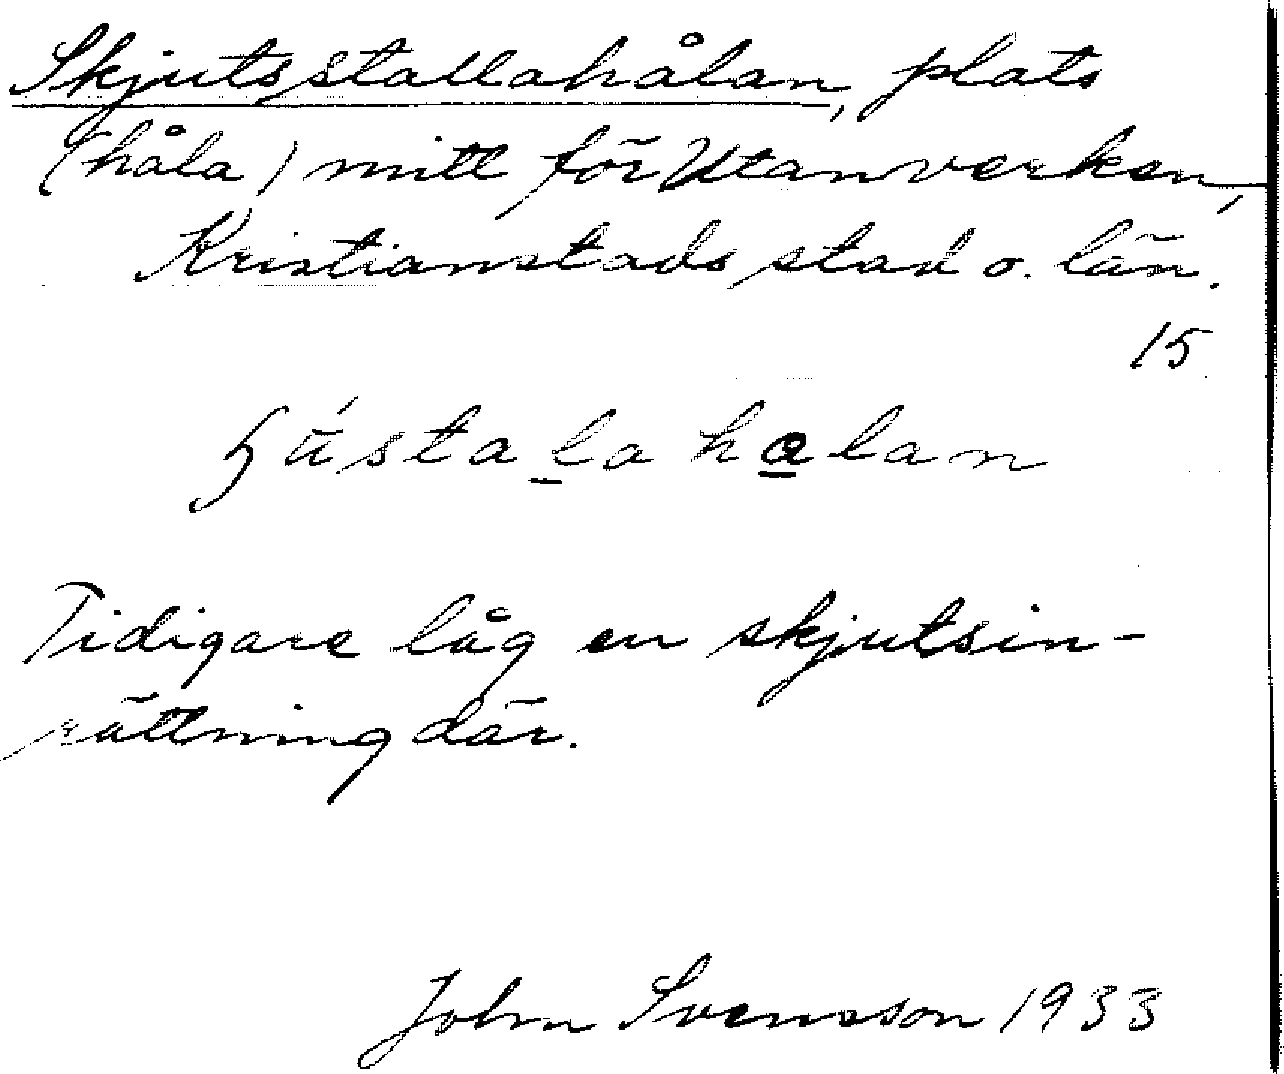 Skjutsstallahålan, plats
(håla) mitt för Utanverken,
Kristianstads stad o. län.
15
Tidigare låg en skjutsin-
rättning där.
John Svensson 1933